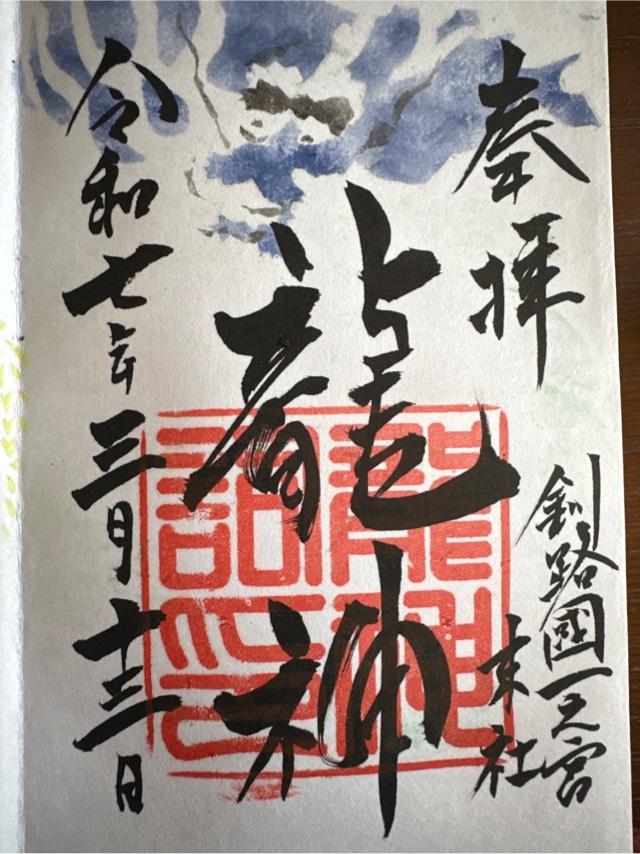 奉拝
釧路國一之宮
末社
龍神
龍神
詣印
令和七年三月十三日